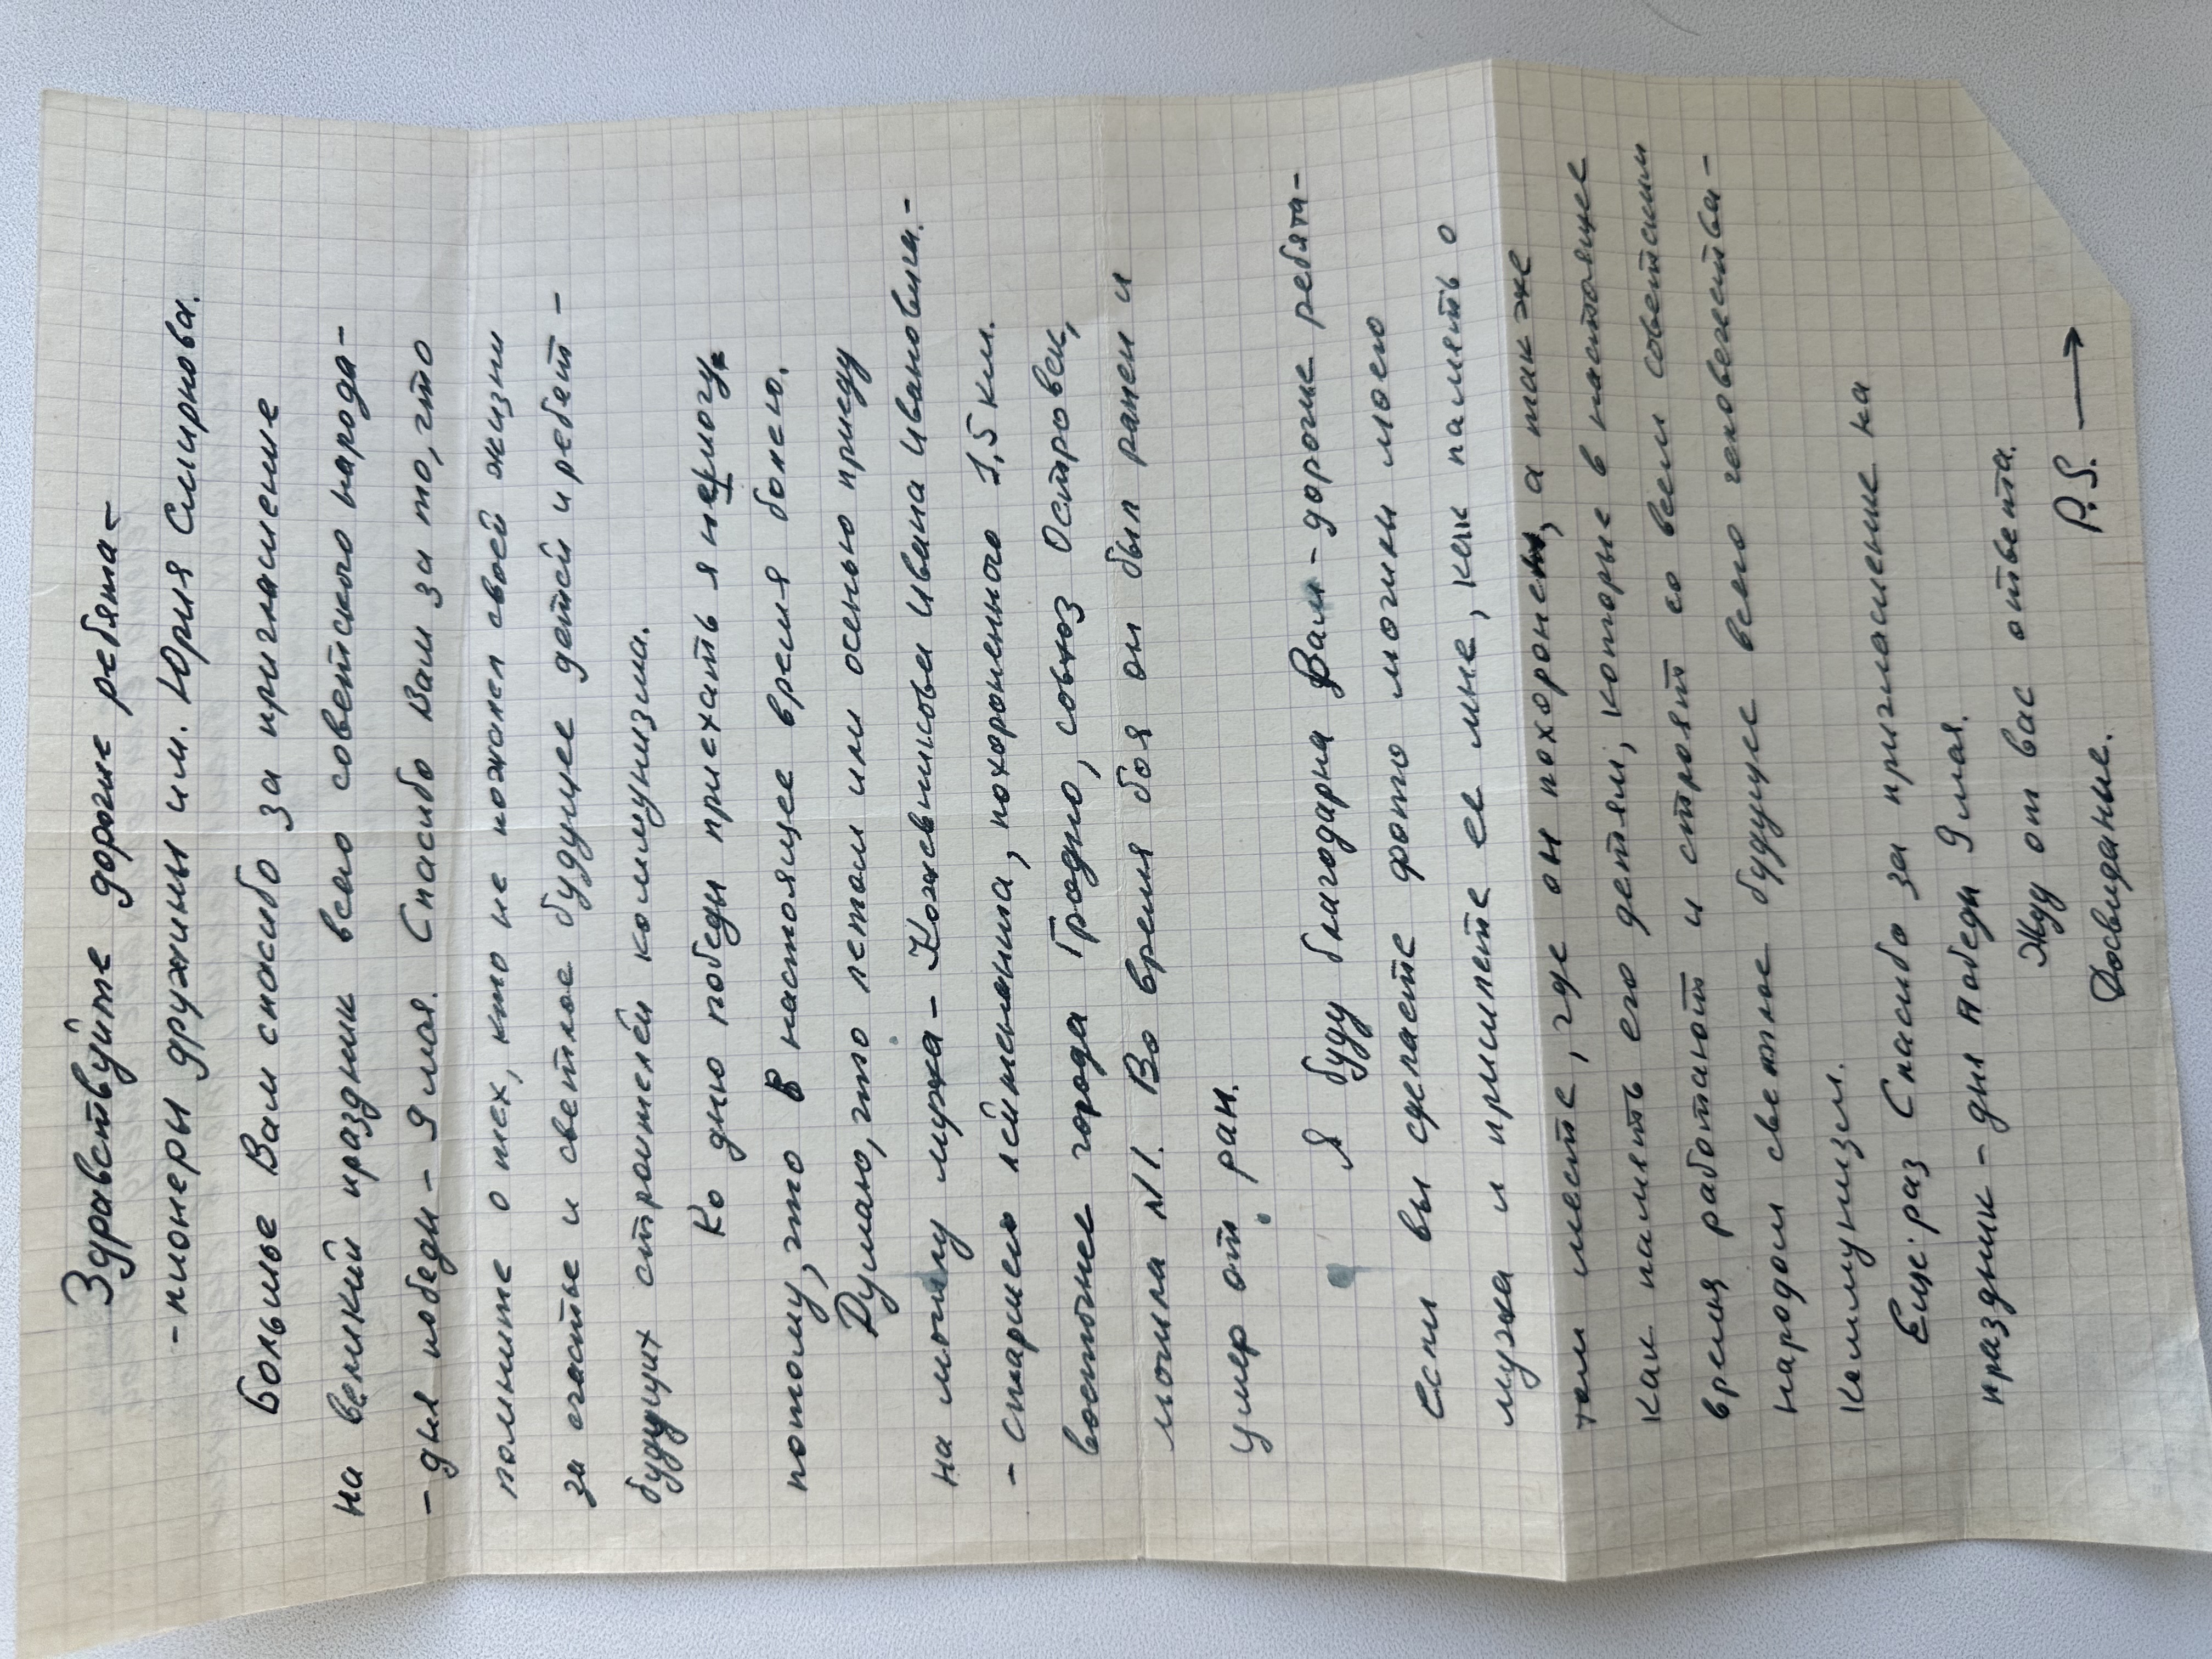 Здравствуйте дорогие ребята –
– пионеры дружины им. Юрия Смирнова.
Большое Вам спасибо за приглашение
на великий праздник всего советского народа –
– дня победы – 9 мая. Спасибо Вам за то, что
помните о тех, кто не пожалел своей жизни
за счастье и светлое будущее детей и ребят –
будущих строителей коммунизма.
Ко дню победы приехать я не могу
потому, что в настоящее время болею.
Думаю, что летом или осенью приеду
на могилу мужа – Кожевникова Ивана Ивановича –
– старшего лейтенанта, похороненного 1,5 км.
восточнее города Гродно, совхоз Островек,
могила №1. Во время боя он был ранен и
умер от ран.
Я буду благодарна Вам – дорогие ребята –
если вы сделаете фото могилы моего
мужа и пришлете ее мне, как память о
том месте, где он похоронен, а так же
как память его детям, которые в настоящее
время работают и строят со всем советским
народом светлое будущее всего человечества –
коммунизм.
Еще раз Спасибо за приглашение на
праздник – дня победы 9 мая.
Жду от вас ответа.
Досвидание.
P.S. →